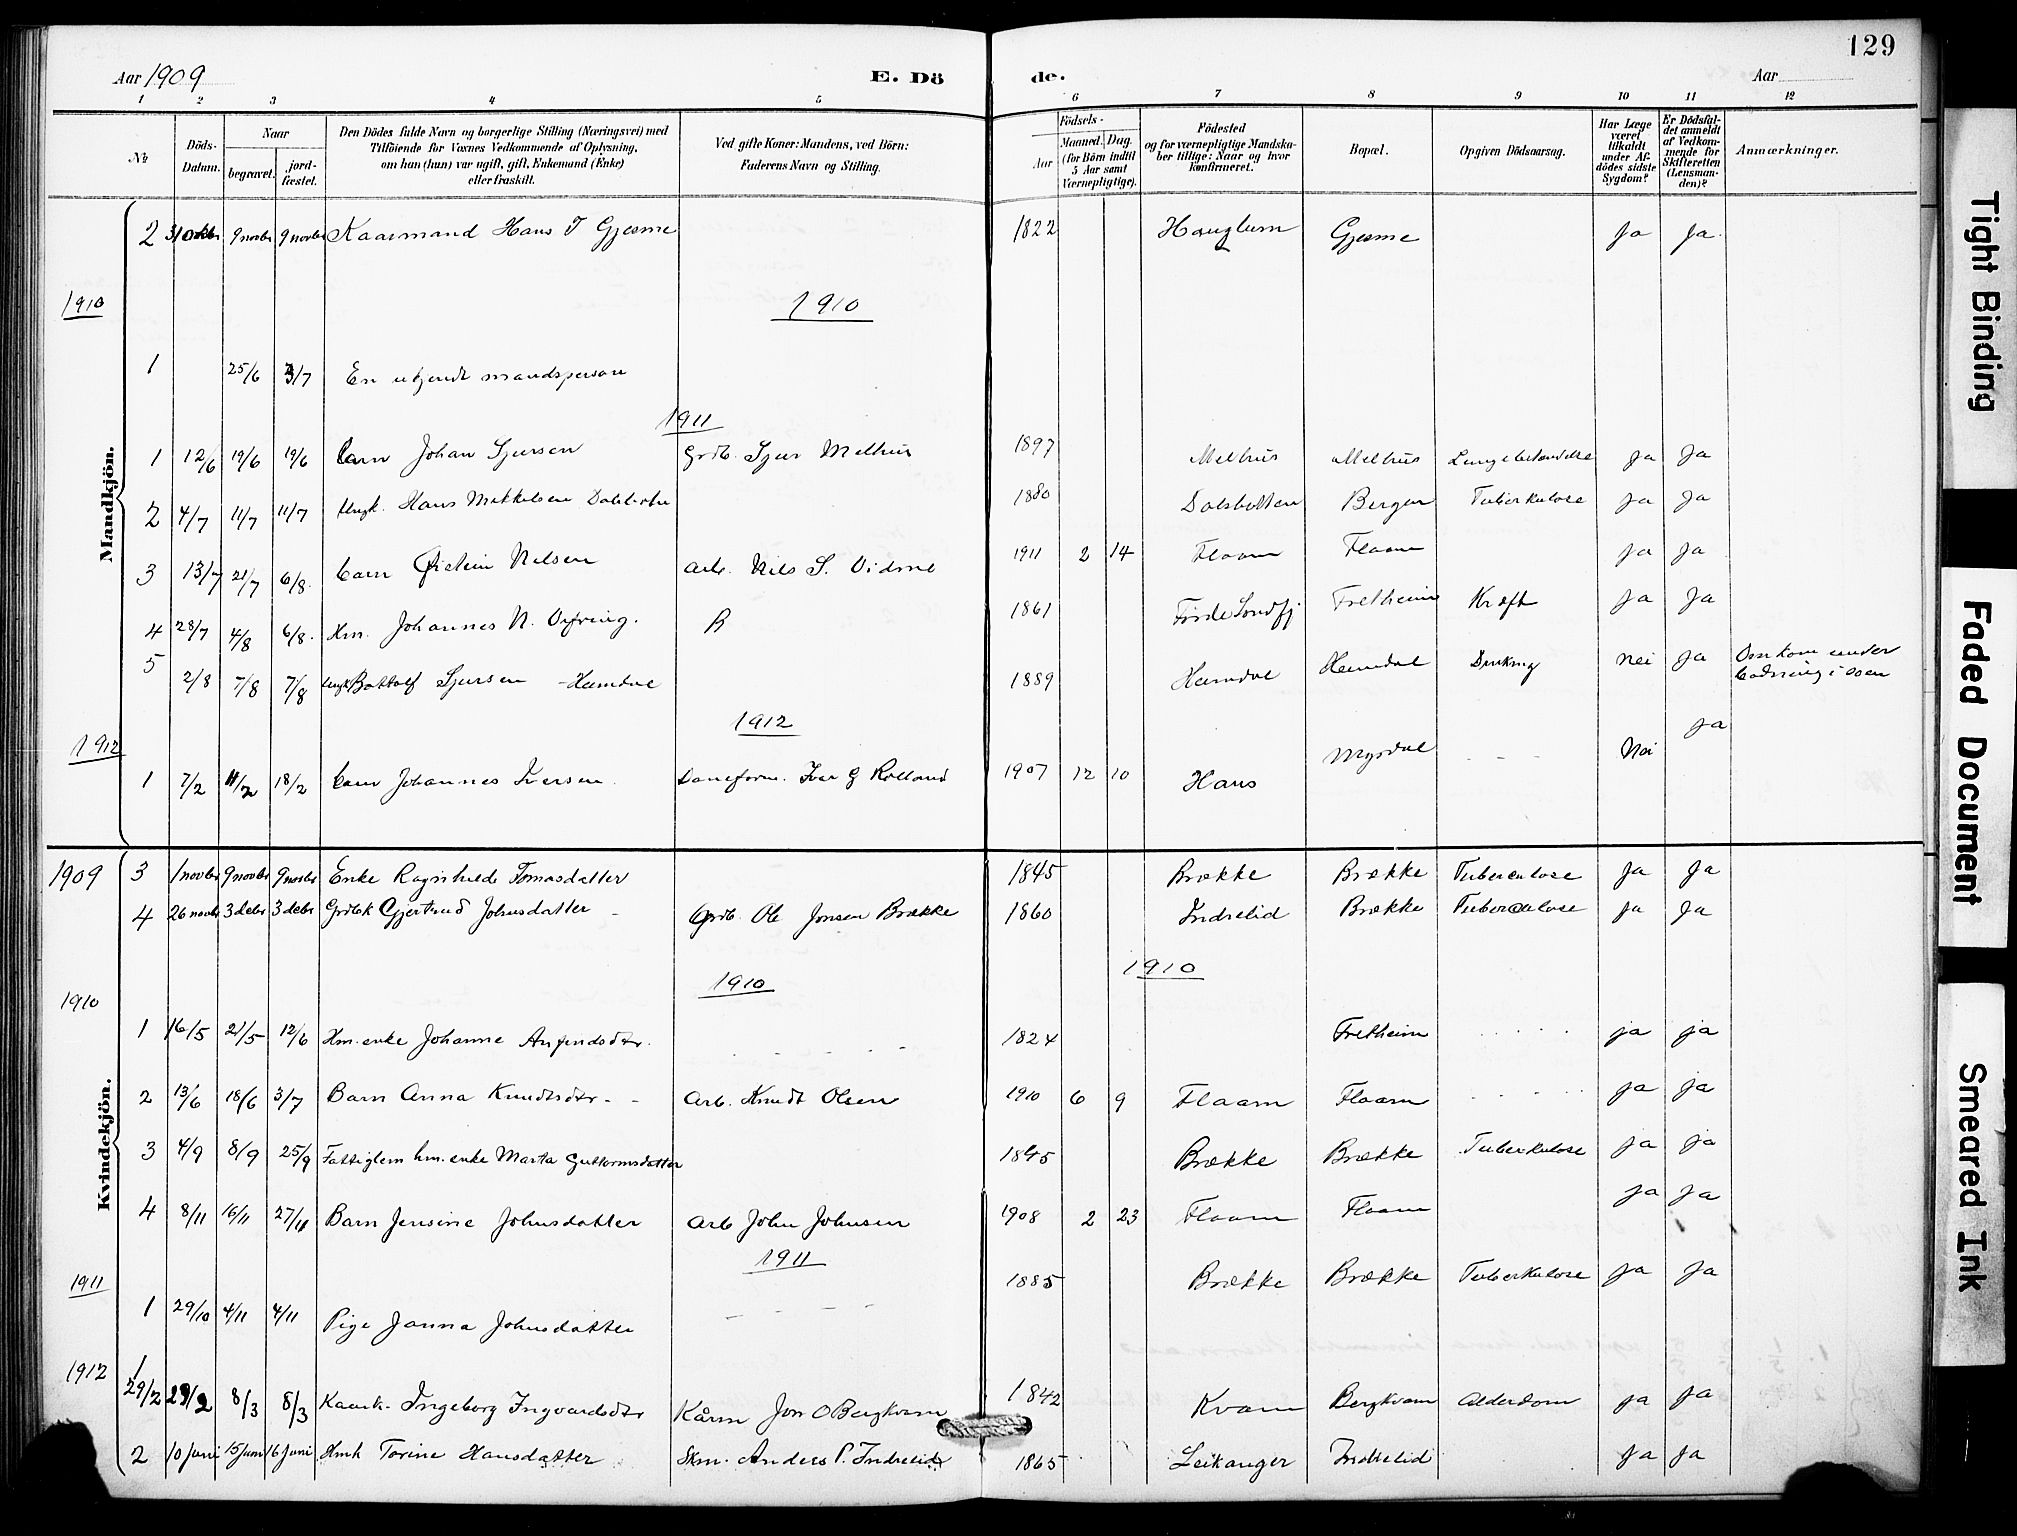 129
Aar 1909 E. Dö de. Aar
1 2 3 4 5 6 7 8 9 10 11 12
№ Döds-Datum. Naar begravet. jord-fæstet. Den Dödes fulde Navn og borgerlige Stilling (Næringsvei) med Tilföiende for Voxnes Vedkommende af Oplysning, om han (hun) var ugift, gift, Enkemand (Enke) eller fraskilt. Ved gifte Koner: Mandens, ved Börn: Faderens Navn og Stilling. Födsels- Aar Maaned. Dag. (for Börn indtil 5 Aar samt Værnepligtige). Födested og for værnepligtige Mandskaber tillige: Naar og hvor konfirmeret. Bopæl. Opgiven Dödsaarsag. Har Læge været tilkaldt under Afdödes sidste Sygdom? Er Dödsfaldet anmeldt af Vedkommende for Skifteretten (Lensmanden)? Anmærkninger.
Mandkjön.
2 31 oktbr 9 novbr 9 novbr Kaarmand Hans T Gjesme 1822 Hauglum Gjesme Ja Ja.
1910 1910
1 25/6 3/7 En ukjendt mandsperson
1911
1 12/6 19/6 19/6 Barn Johan Sjursen Grdb. Sjur Melhus 1897 Melhus Melhus Lungebetændelse Ja Ja
2 4/7 11/7 11/7 Ungk. Hans Mikkelsen Dalsbotn 1880 Dalsbotten Bergen Tuberkulose Ja Ja
3 13/7 21/7 6/8. Barn Øistein Nilsen Arb. Nils S. Vidme 1911 2 14 Flaam Flaam Ja Ja
4 28/7 4/8 6/8. Hm. Johannes N. 1861 Förde Söndfj Fretheim Kræft Ja Ja
5 2/8 7/8 7/8 Ungk Bottolf Sjursen - Hamdal 1889 Hamdal Hamdal Drukning Nei Ja Omkom under badning i
1912 1912
1 7/2 11/2 18/2 Barn Johannes Iversen. Baneform. Ivar G Rolland 1907 12 10 Haus Myrdal - - - Nei Ja
Kvindekjön.
1909 3 1 novbr 9 novbr 9 novbr Enke Ragnhilde Tomasdatter 1845 Brække Brække Tuberculose Ja Ja
4 26 novbr 3 debr 3 debr Grdbk Gjertrud Johnsdatter - Grdb. Ole Jonsen Brække 1860 Indrelid Brække Tuberculose Ja Ja
1910 1910 1910
1 16/5 21/5 12/6 Hm. enke Johanne Anfindsdtr. 1824 Fretheim ja ja
2 13/6 18/6 3/7 Barn Anna Knudtsdtr- - Arb. Knudt Olsen 1910 6 9 Flaam Flaam ja ja
3 4/9 8/9 25/9 Fattiglem hm. enke Marta Guttormsdatter 1845 Brække Brække Tuberkulose ja ja
4 8/11 16/11 27/11 Barn Jensine Johnsdatter Arb John Johnsen 1908 2 23 Flaam Flaam ja ja
1911 1911
1 29/10 4/11 4/11 Pige Janna Johnsdatter - - - - 1885 Brække Brække Tuberkulose Ja Ja
1912
1 29/2 29/2 8/3 8/3 Kaark. Ingeborg Ingvardsdtr Kårm Jon O Bergkvam 1842 Kvam Bergkvam Alderdom ja ja
2 10 juni 15 juni 16 juni Hmk Torine Hansdatter Hm. Anders P. Indrelid 1865 Leikanger Indrelid Ja Ja
Tight Binding
Faded Document
Smeared Ink